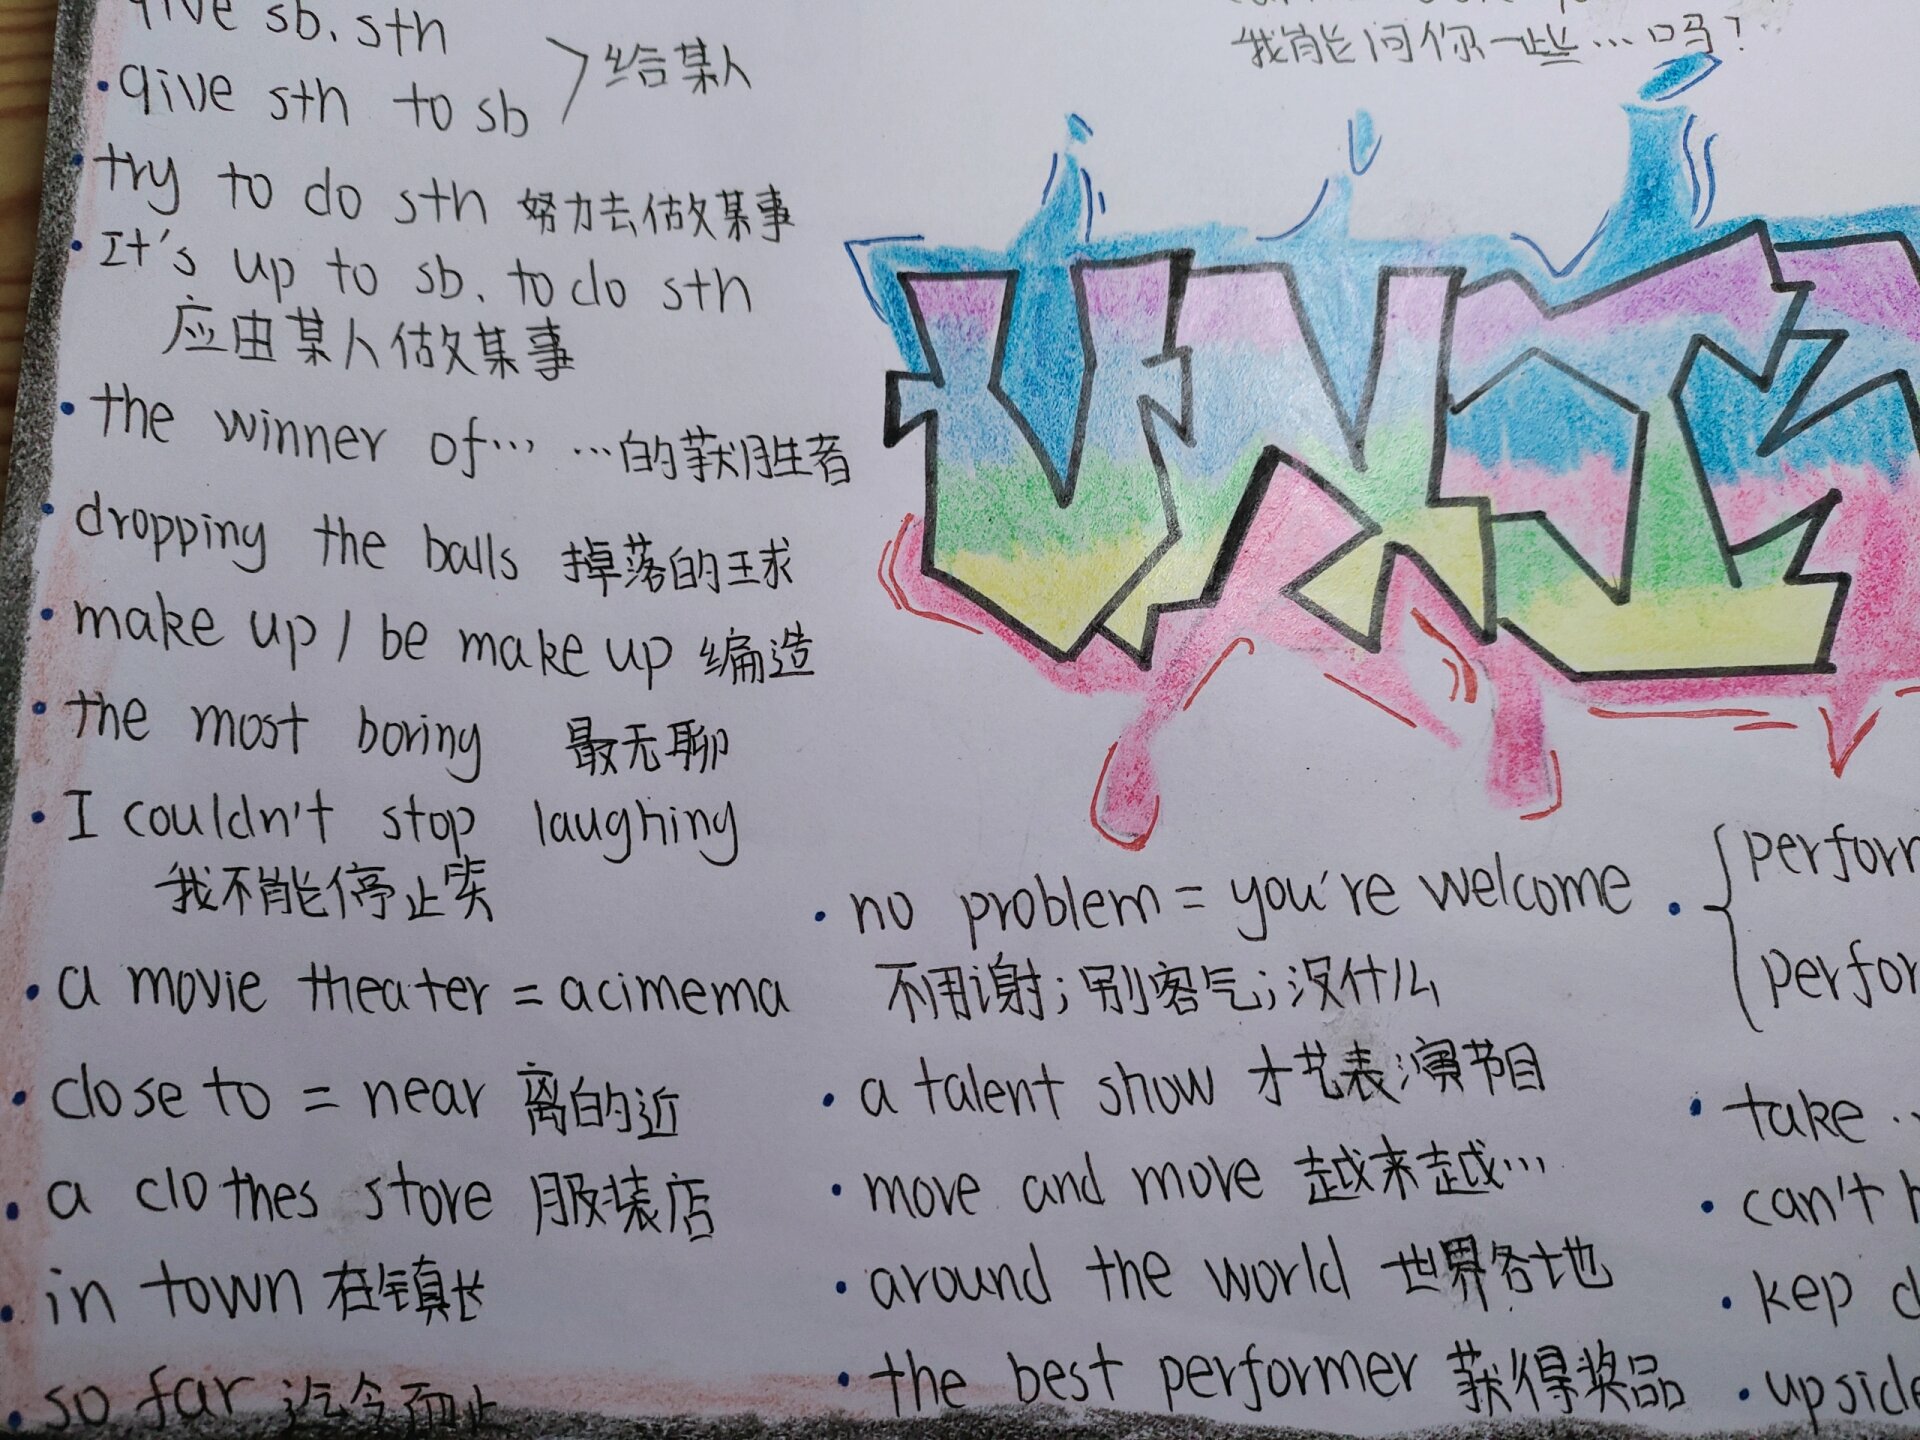 give sb. sth
· give sth to sb > 给某人
· try to do sth 努力去做某事
· It's up to sb. to do sth
应由某人做某事
· the winner of… …的获胜者
· dropping the balls 掉落的球
· make up / be make up 编造
· the most boring 最无聊
· I couldn't stop laughing
我不能停止笑
· a movie theater = acimema
· close to = near 离的近
· a clothes store 服装店
· in town 在镇长
· so far 迄今而止
我能问你一些…吗?
UNIT
· no problem = you're welcome
不用谢;别客气;没什么
· a talent show 才艺表演节目
· move and move 越来越…
· around the world 世界各地
· the best performer 获得奖品
· { perform
perfor
· take ..
· can't h
· kep d
· upside